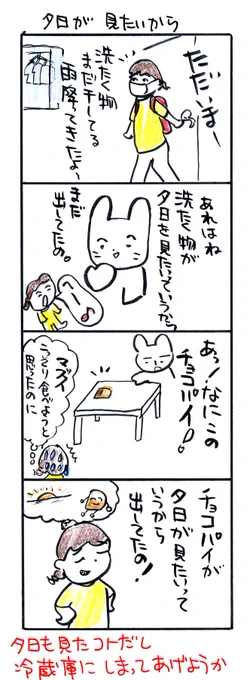 夕日が 見たいから
ただいまー
洗たく物
まだ干してる
雨降ってきたよー
あれはね
洗たく物が
夕日を見たいっていうから
まだ
出してたの。
あっ!なにこの
チョコパイ!
マズイ
こっそり食べようと
思ってたのに
チョコパイが
夕日が見たいって
いうから
出してたの!
今日も見たコトだし
冷蔵庫に しまってあげようか